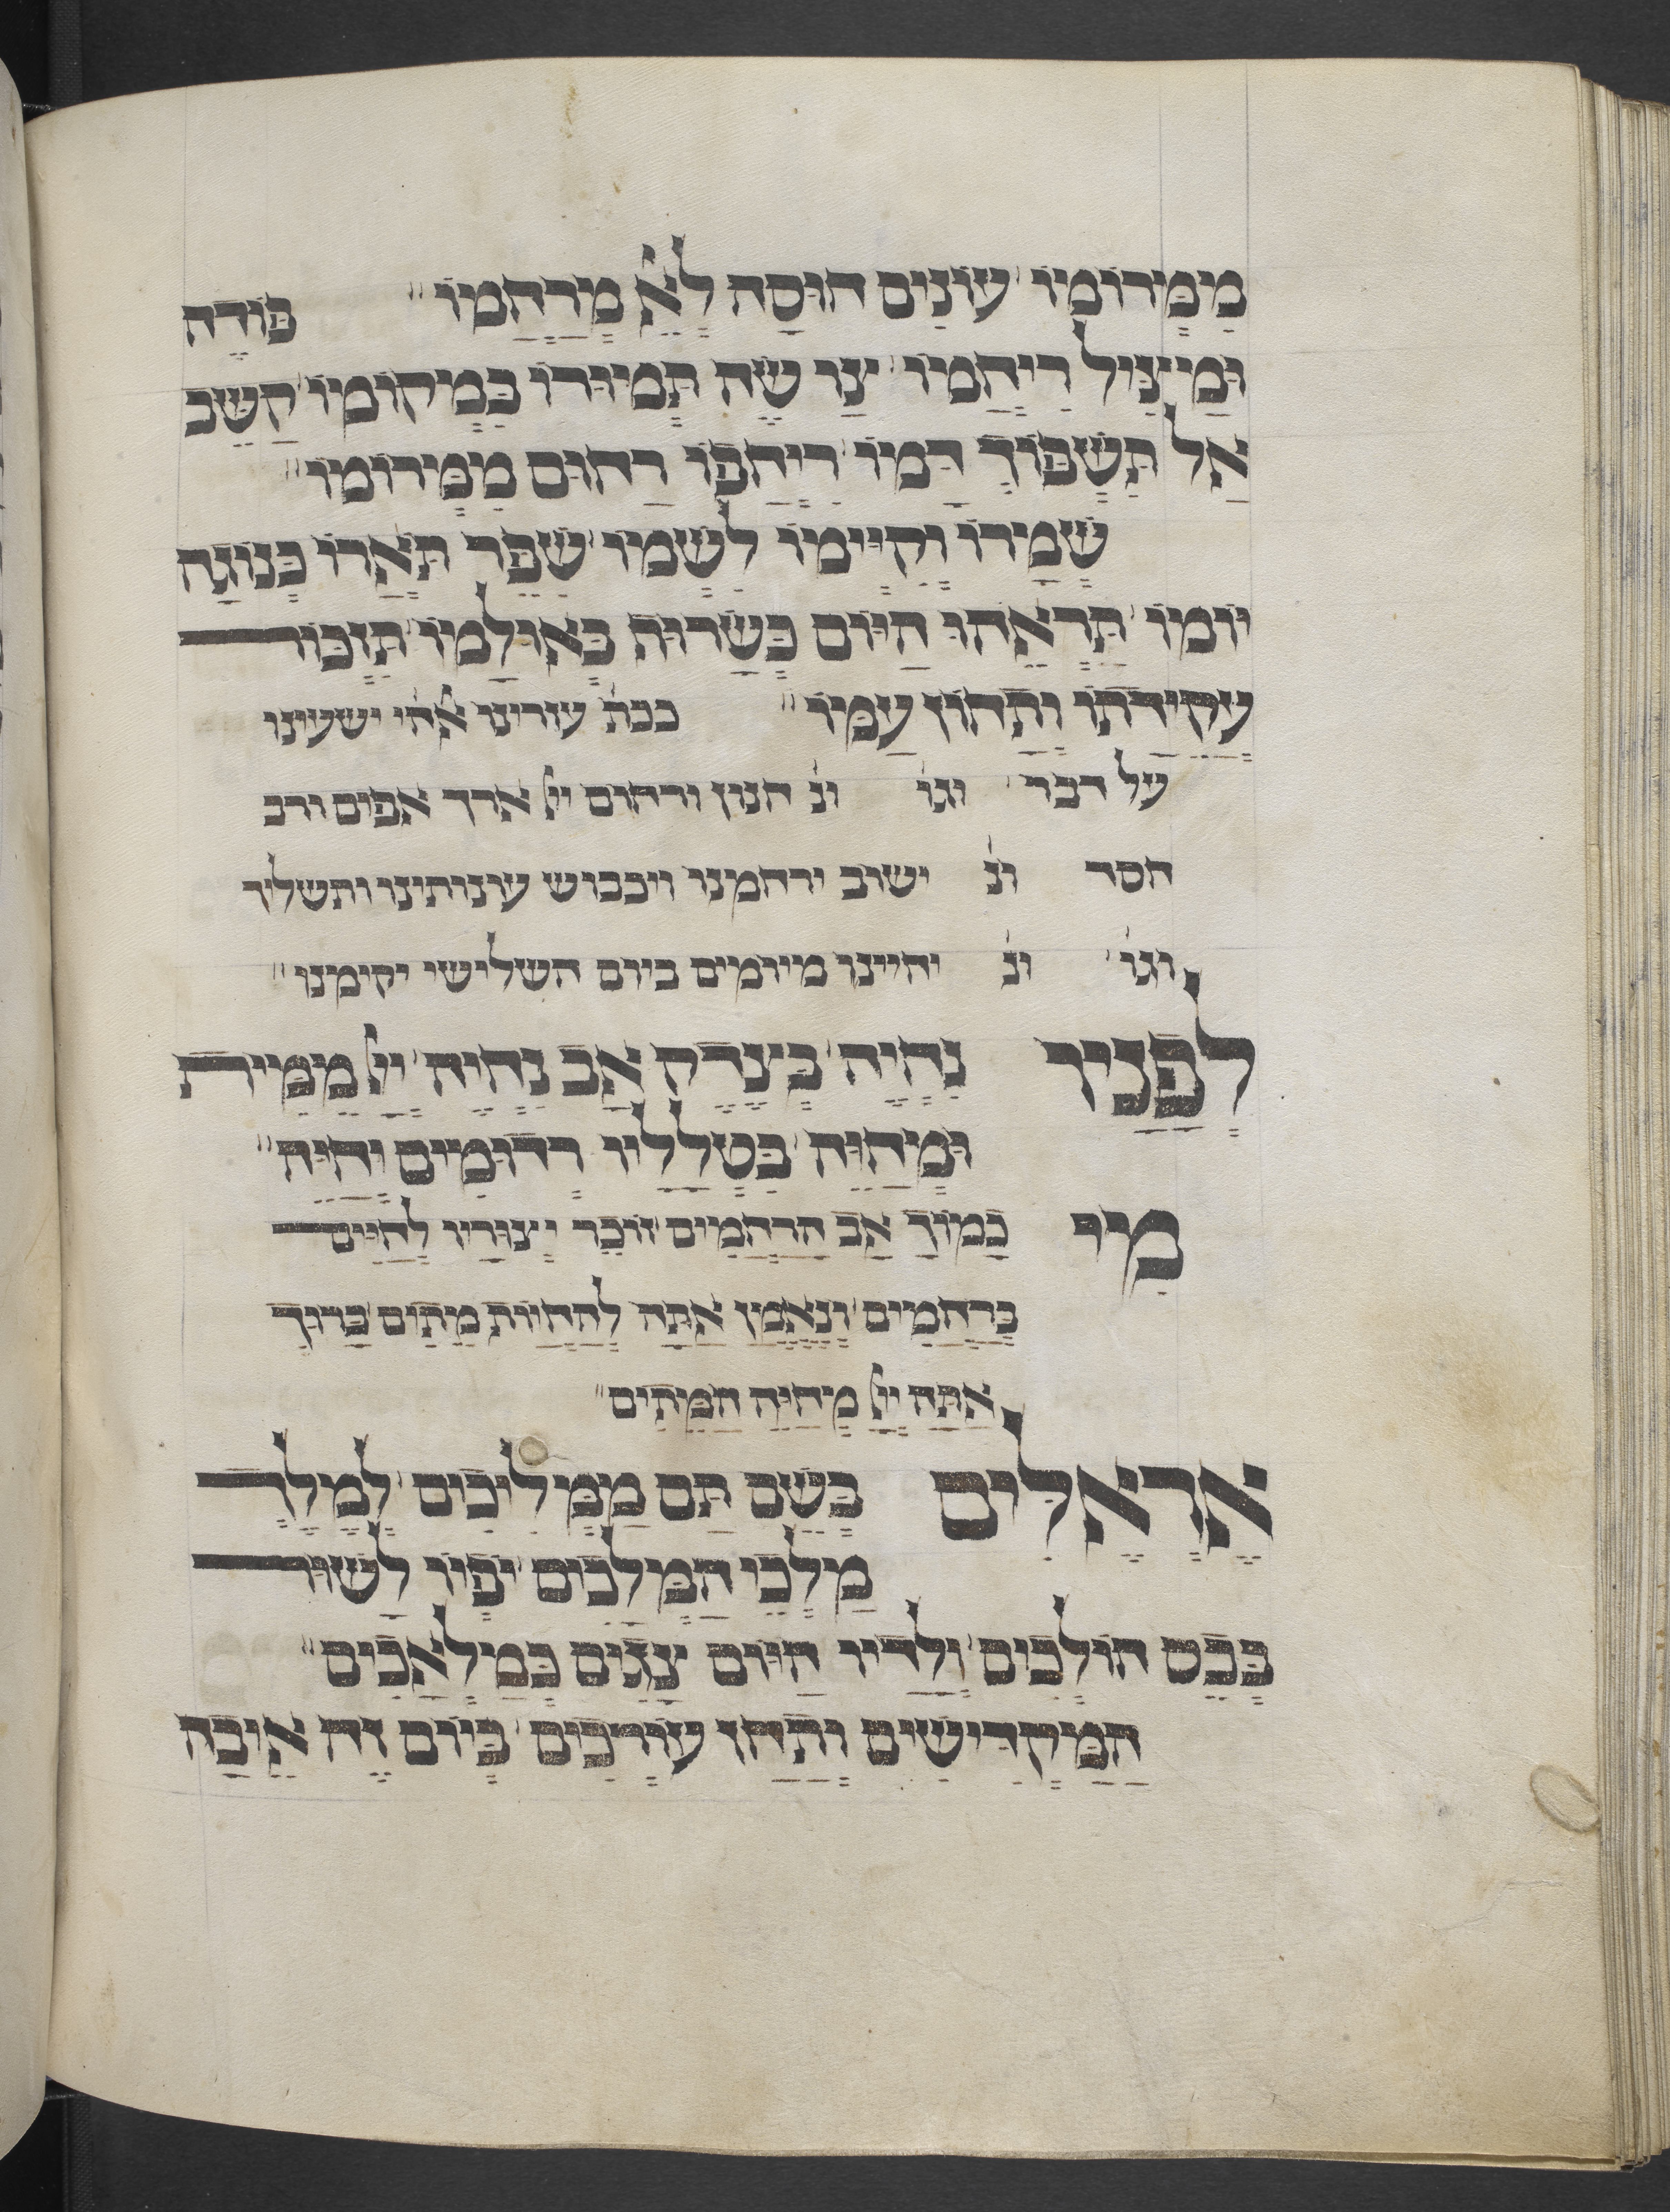 מִמְּרוֹמָיו עוֹנִים חוּסָה לְאֵ֗ מְרַחֲמָיו׃ פּוֹדֶה
וּמַיצִּיל רִיחֲמָיו צַו שֶׂה תְּמוּרוֹ בִּמְקוֹמָיו קַשֵּׁב
אַל תִּשְׁפּוֹךְ דָּמָיו רִיחֲפוֹ רַחוּם מִמְּרוֹמָיו׃
שְׁמָרוֹ וְקִיְּימוֹ לִשְׁמָיו שִׁפֵּר תֹּאֲרוֹ כְּנוֹגַהּ
יוֹמָיו תִּרְאֵהוּ הַיּוֹם כְּשָׂרוּף בְּאוּלָמָיו תִּזְכּוֹר
עֲקֵידָתוֹ וְתָחוֹן עַמָּיו׃ ככת עזרינו אלהי ישעינו
על דבר וגו֗ ונ֗ חנון ורחום יי֗ ארך אפים ורב
חסד ונ֗ ישוב ירחמנו ויכבוש עונותינו ותשליך
וגו֗ ונ֗ יחיינו מיומים ביום השלישי יקימנו׃
לְפָנָיו נִחְיֶה בְּצֶדֶק אָב נִחְיֶה יי֗ מֵמִית
וּמְחַיֶּה בְּטַלְלָיו רְדוּמִים יְחַיֶּה׃
מִי כָמוֹךָ אַב הָרַחֲמִים זוֹכֵר יְצוּרָיו לַחַיִּים
בְּרַחֲמִים וְנֶאֱמָן אַתָּה לְהַחֲיוֹת מֵתִים בָּרוּךְ
אַתָּה יי֗ מְחַיֵּה הַמֵּתִים׃
אֶרְאֶלִּים בְּשֵׁם תָּם מַמְלִיכִים לְמֶלֶךְ
מַלְכֵי הַמְּלָכִים יָפְיוֹ לָשׁוּר
בְּבַס הוֹלְכִים וְלָדָיו הַיּוֹם צָגִים כְּמַלְאָכִים׃
הַמַּקְדִּישִׁים וְתַחַן עוֹרְכִים בְּיוֹם זֶה אֵיכָה